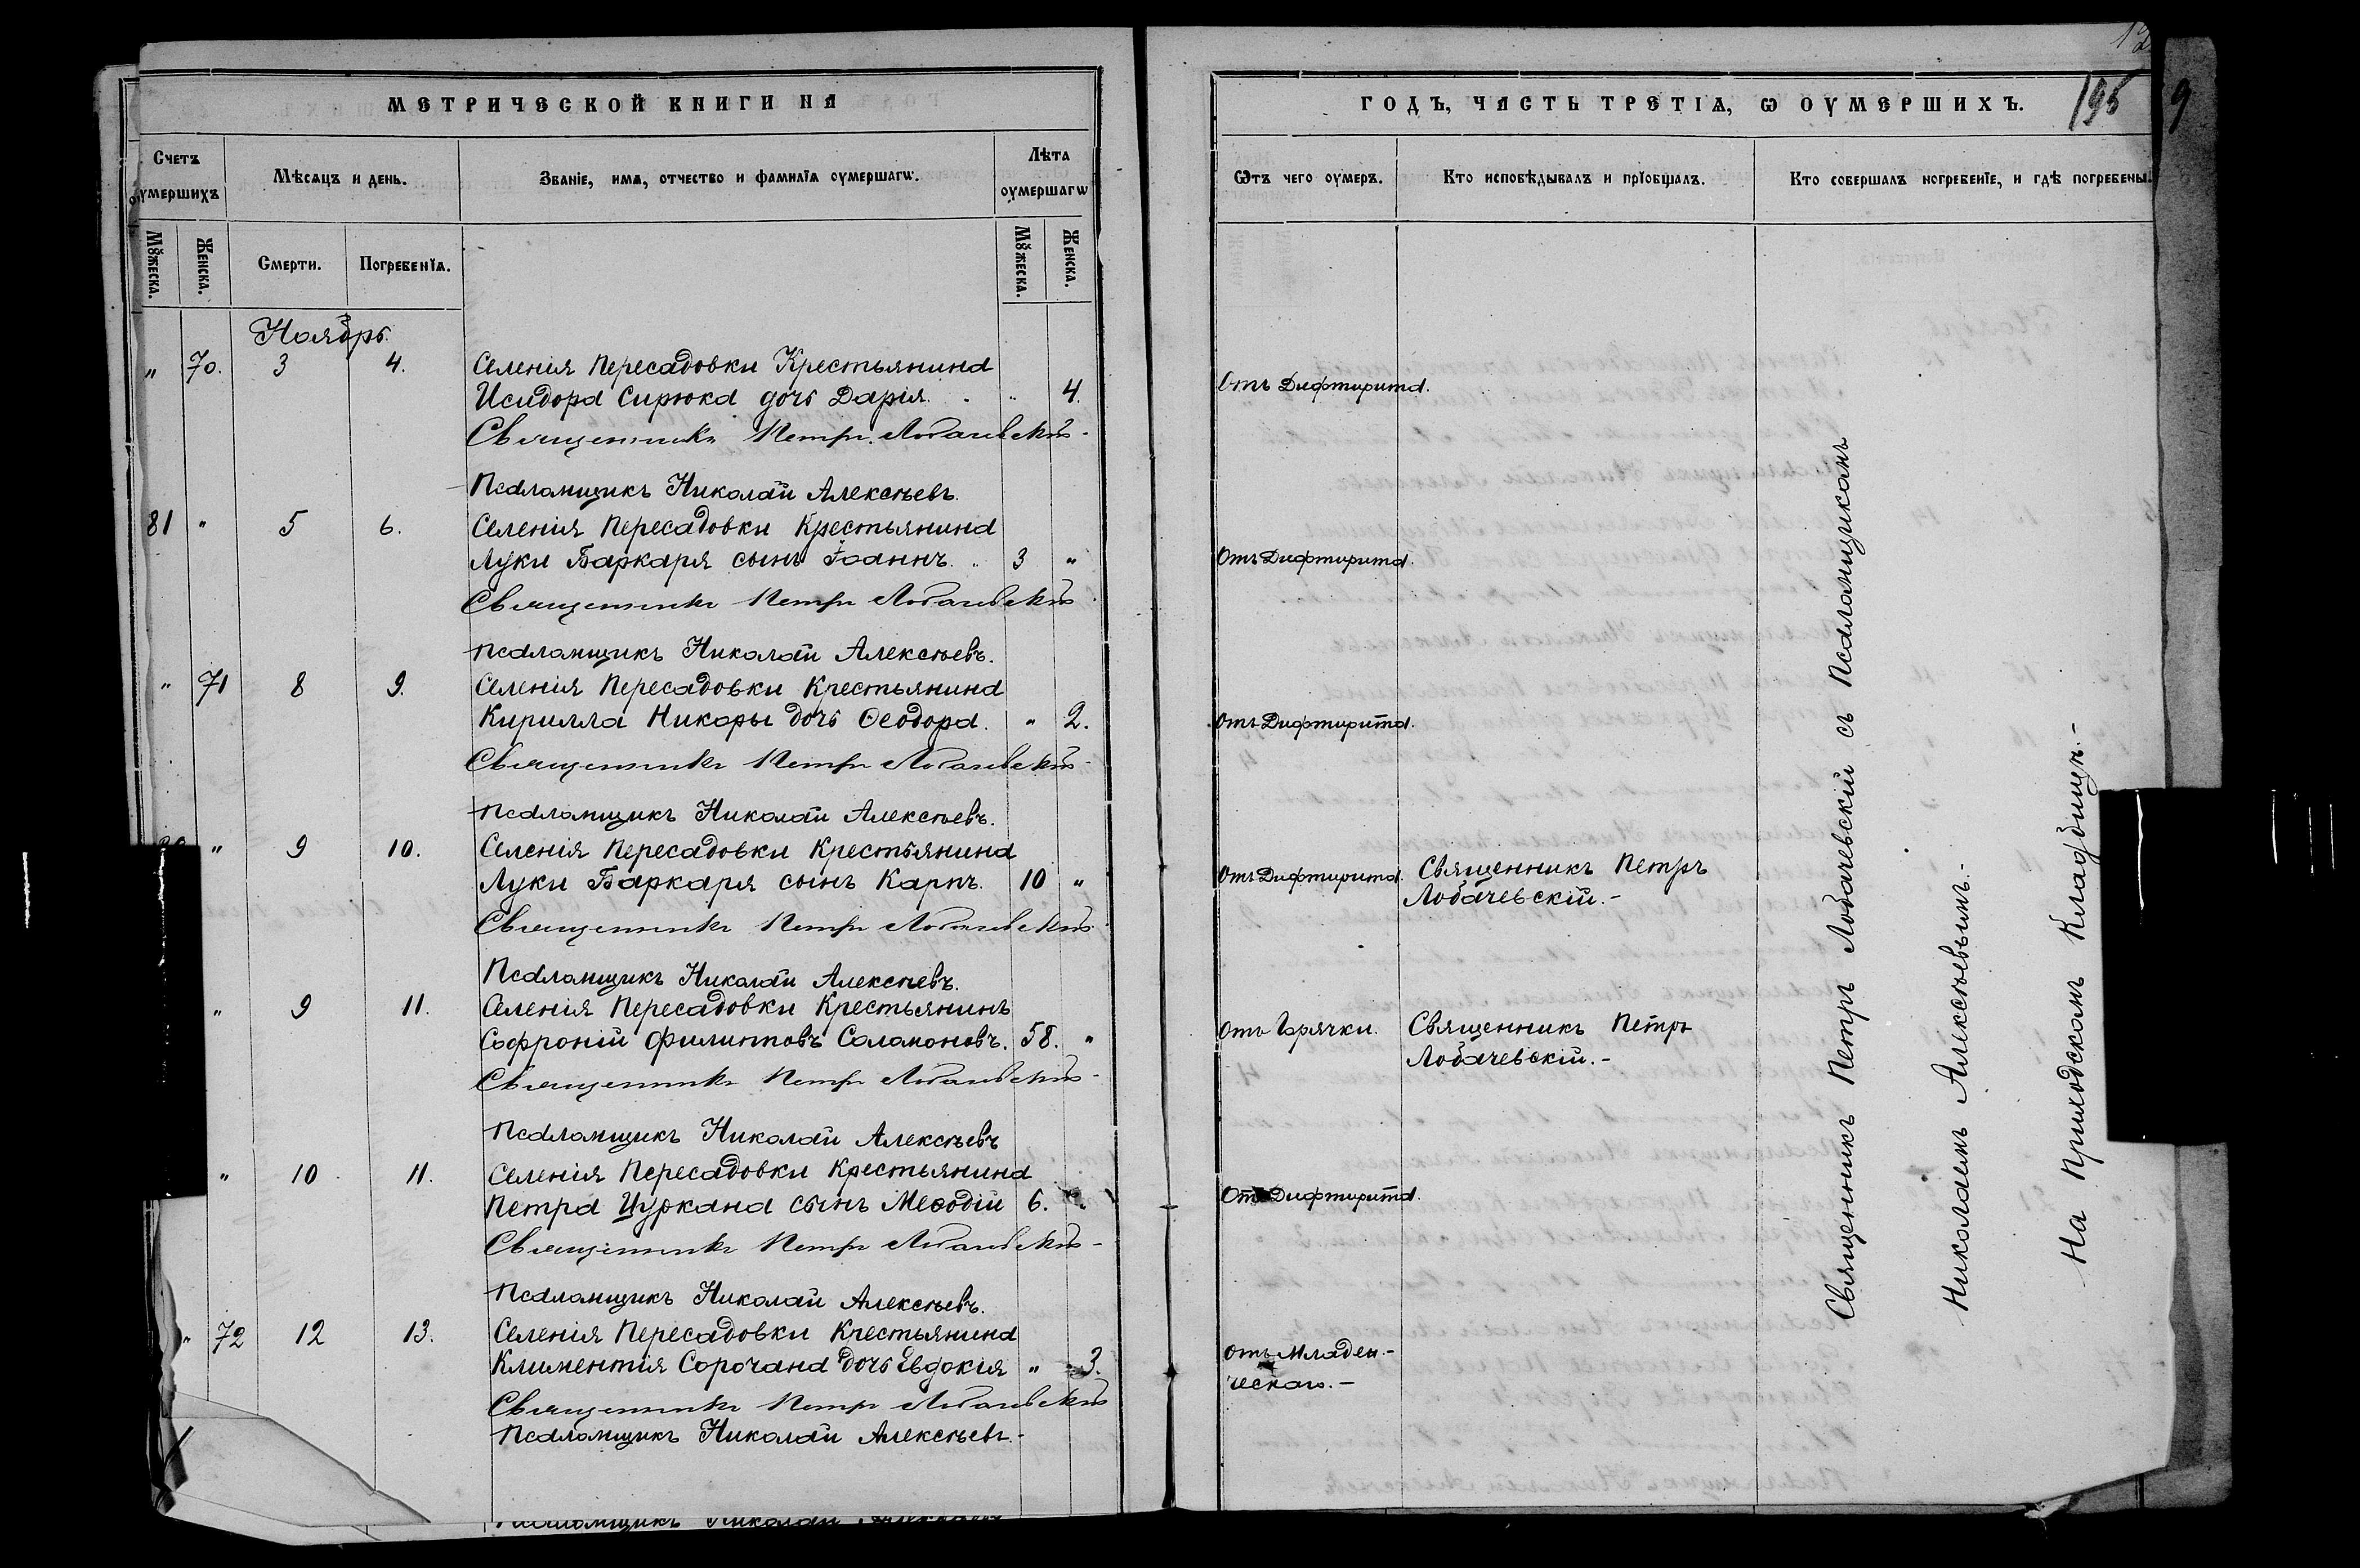 МЕТРИЧЕСКОЙ КНИГИ НА
Счетъ оумершихъ
Мѣсяцъ и день.
Званіе, имя, отчество и фамилія оумершагѡ.
Лѣта оумершагѡ
Мужеска.
Женска.
Смерти.
Погребенія.
Мужеска.
Женска.
Ноябрь.
„ 70. 3 4. Селенія Пересадовки Крестьянина
Исидора Сирюка дочь Дарія. „ 4.
Священникъ Петръ Лобачевскій
Псаломщикъ Николай Алексѣевъ.
81 „ 5 6. Селенія Пересадовки Крестьянина
Луки Баркаря сынъ Іоаннъ. 3 „
Священникъ Петръ Лобачевскій
Псаломщикъ Николай Алексѣевъ.
„ 71 8 9. Селенія Пересадовки Крестьянина
Кирилла Никоры дочь Ѳеодора. „ 2.
Священникъ Петръ Лобачевскій
Псаломщикъ Николай Алексѣевъ.
„ 9 10. Селенія Пересадовки Крестьянина
Луки Баркаря сынъ Карпъ. 10 „
Священникъ Петръ Лобачевскій
Псаломщикъ Николай Алексѣевъ.
„ 9 11. Селенія Пересадовки Крестьянинъ
Софроній Филиповъ Саламоновъ. 58. „
Священникъ Петръ Лобачевскій
Псаломщикъ Николай Алексѣевъ
„ 10 11. Селенія Пересадовки Крестьянина
Петра Цуркана сынъ Меѳодій 6. „
Священникъ Петръ Лобачевскій
Псаломщикъ Николай Алексѣевъ.
„ 72 12 13. Селенія Пересадовки Крестьянина
Климентія Сорочана дочь Евдокія „ 3.
Священникъ Петръ Лобачевскій
Псаломщикъ Николай Алексѣевъ.-
Псаломщикъ Николай Алексѣевъ
ГОДЪ, ЧАСТЬ ТРЕТІЯ, Ѡ ОУМЕРШИХЪ.
195
9
Ѿтъ чего оумеръ.
Кто исповѣдывалъ и пріобщалъ.
Кто совершалъ погребеніе, и гдѣ погребены.
Отъ Дифтирита.
Отъ Дифтирита.
Отъ Дифтирита.
Отъ Дифтирита. Священникъ Петръ
Лобачевскій.-
Отъ Горячки. Священникъ Петръ
Лобачевскій.-
Отъ Дифтирита.
Отъ Младен.-
ческой.-
Священникъ Петръ Лобачевскій съ Псаломщикомъ
Николаемъ Алексѣевымъ.-
На Приходскомъ Кладбищѣ.-